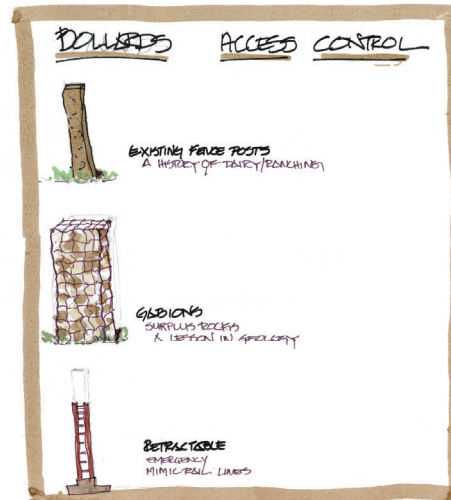 BOLLARDS ACCESS CONTROL
EXISTING FENCE POSTS
A HISTORY OF DAIRY/RANCHING
GABIONS
SURPLUS ROCKS
A LESSON IN GEOLOGY
RETRACTABLE
EMERGENCY
MIMIC RAIL LINES